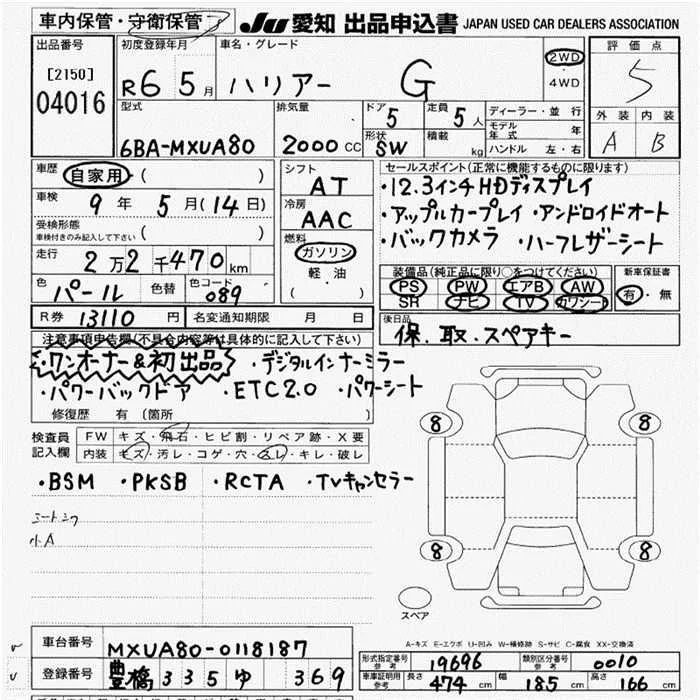 車内保管・守衛保管
JU 愛知 出品申込書 JAPAN USED CAR DEALERS ASSOCIATION
出品番号
[2150]
04016
初度登録年月
R6 5月
車名・グレード
ハリアー G
2WD
・
4WD
評価点
5
外装 内装
A B
型式
6BA-MXUA80
排気量
2000 CC
ドア
5
形状
SW
定員
5人
積載
kg
ディーラー・並行
モデル年式 年
ハンドル 左・右
車歴
自家用・( )
車検
9年 5月(14日)
受検形態
車検付きのみ記入して下さい ( )
走行
2万2千470km
色
パール
色替
色コード
089
シフト
AT
冷房
AAC
燃料
ガソリン
軽・油
( )
セールスポイント(正常に機能するものに限ります)
・12.3インチHDディスプレイ
・アップルカープレイ ・アンドロイドオート
・バックカメラ ・ハーフレザーシート
装備品(純正品に限り○をつけてください)
PS PW エアB AW
SR ナビ TV カワシート
新車保証書
有・無
R券 13110 円
名変通知期限 月 日
後日品
保.取.スペアキー
注意事項申告欄(不具合内容等は具体的に記入して下さい)
・ワンオーナー&初出品 ・デジタルインナーミラー
・パワーバックドア ・ETC2.0 ・パワーシート
修復歴 有(箇所 )
検査員
記入欄
FW キズ・飛石・ヒビ割・リペア跡・X要
内装 キズ・汚レ・コゲ・穴・スレ・キレ・破レ
・BSM ・PKSB ・RCTA ・TVキャンセラー
小A
8 8
8 8
スペア
A-キズ E-エクボ U-凹み W-補修跡 S-サビ C-腐食 XX-交換済
車台番号 MXUA80-0118187
登録番号 豊橋 335 ゆ 369
形式指定番号
参考
19696
類別区分番号
参考
0010
車庫証明用
参考
長さ 474 cm 幅 185 cm 高さ 166 cm